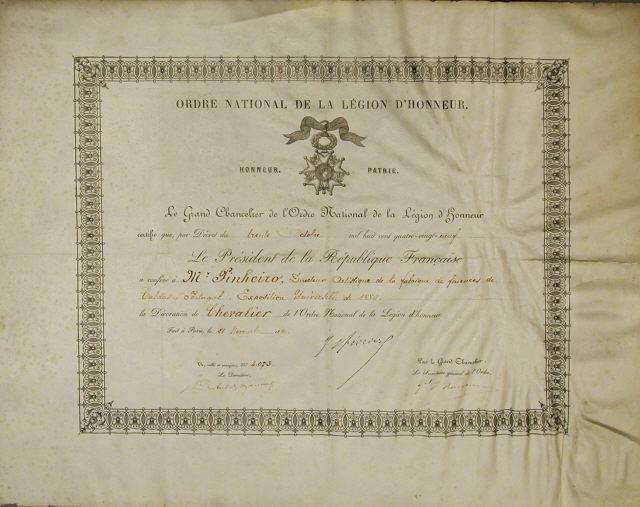 ORDRE NATIONAL DE LA LÉGION D'HONNEUR.
HONNEUR. PATRIE.
Le Grand Chancelier de l'Ordre National de la Légion d'Honneur
certifie que, par Décret du trente Octobre mil huit cent quatre-vingt-neuf
Le Président de la République Française
a conféré à Mr Pinheiro, Directeur Artistique de la fabrique de faïences de
Caldas, Portugal, Exposition Universelle de 1889.
la Décoration de Chevalier de l'Ordre National de la Légion d'honneur
Fait à Paris, le 21 Novembre
Vu, scellé et enregistré, No 4073
Le Directeur,
Par le Grand Chancelier.
Le Secrétaire général de l'Ordre,